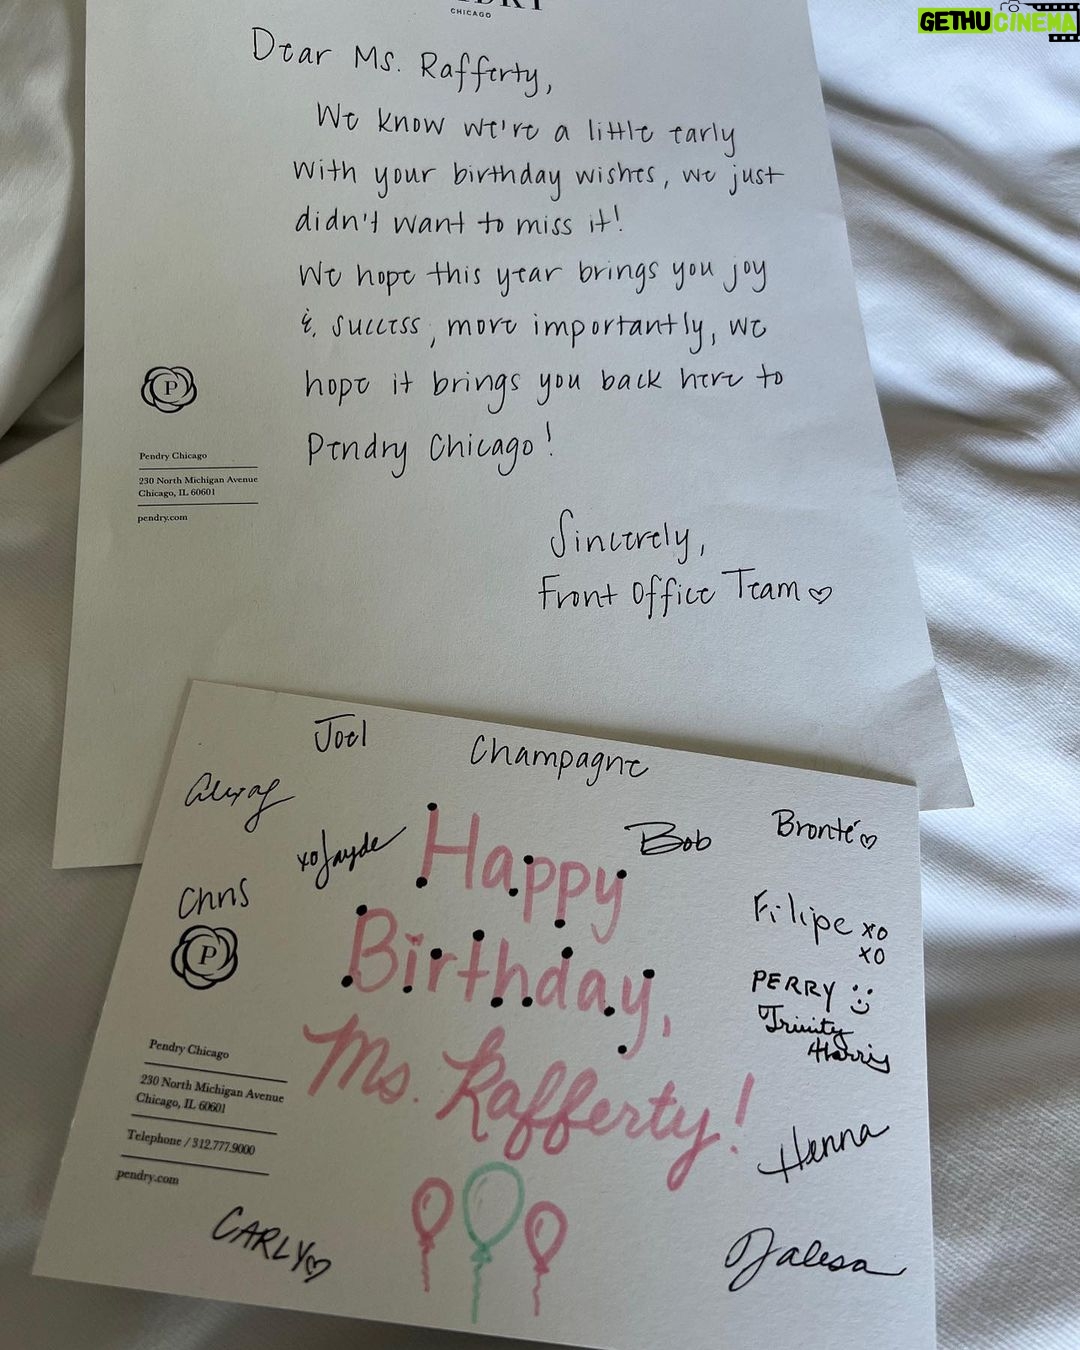 GETHUCINEMA
CHICAGO
Dear Ms. Rafferty,
We know we're a little early
with your birthday wishes, we just
didn't want to miss it!
We hope this year brings you joy
&, success, more importantly, we
hope it brings you back here to
Pendry Chicago!
Sincerely,
Front Office Team ♡
P
Pendry Chicago
230 North Michigan Avenue
Chicago, IL 60601
pendry.com
Joel
Champagne
xo Jayde
Bob
Bronté ♡
Chris
Filipe xo
xo
PERRY
Trinity
Harris
Happy
Birthday,
Ms. Rafferty!
P
Pendry Chicago
230 North Michigan Avenue
Chicago, IL 60601
Telephone / 312.777.9000
pendry.com
Henna
CARLY ♡
Jalesa